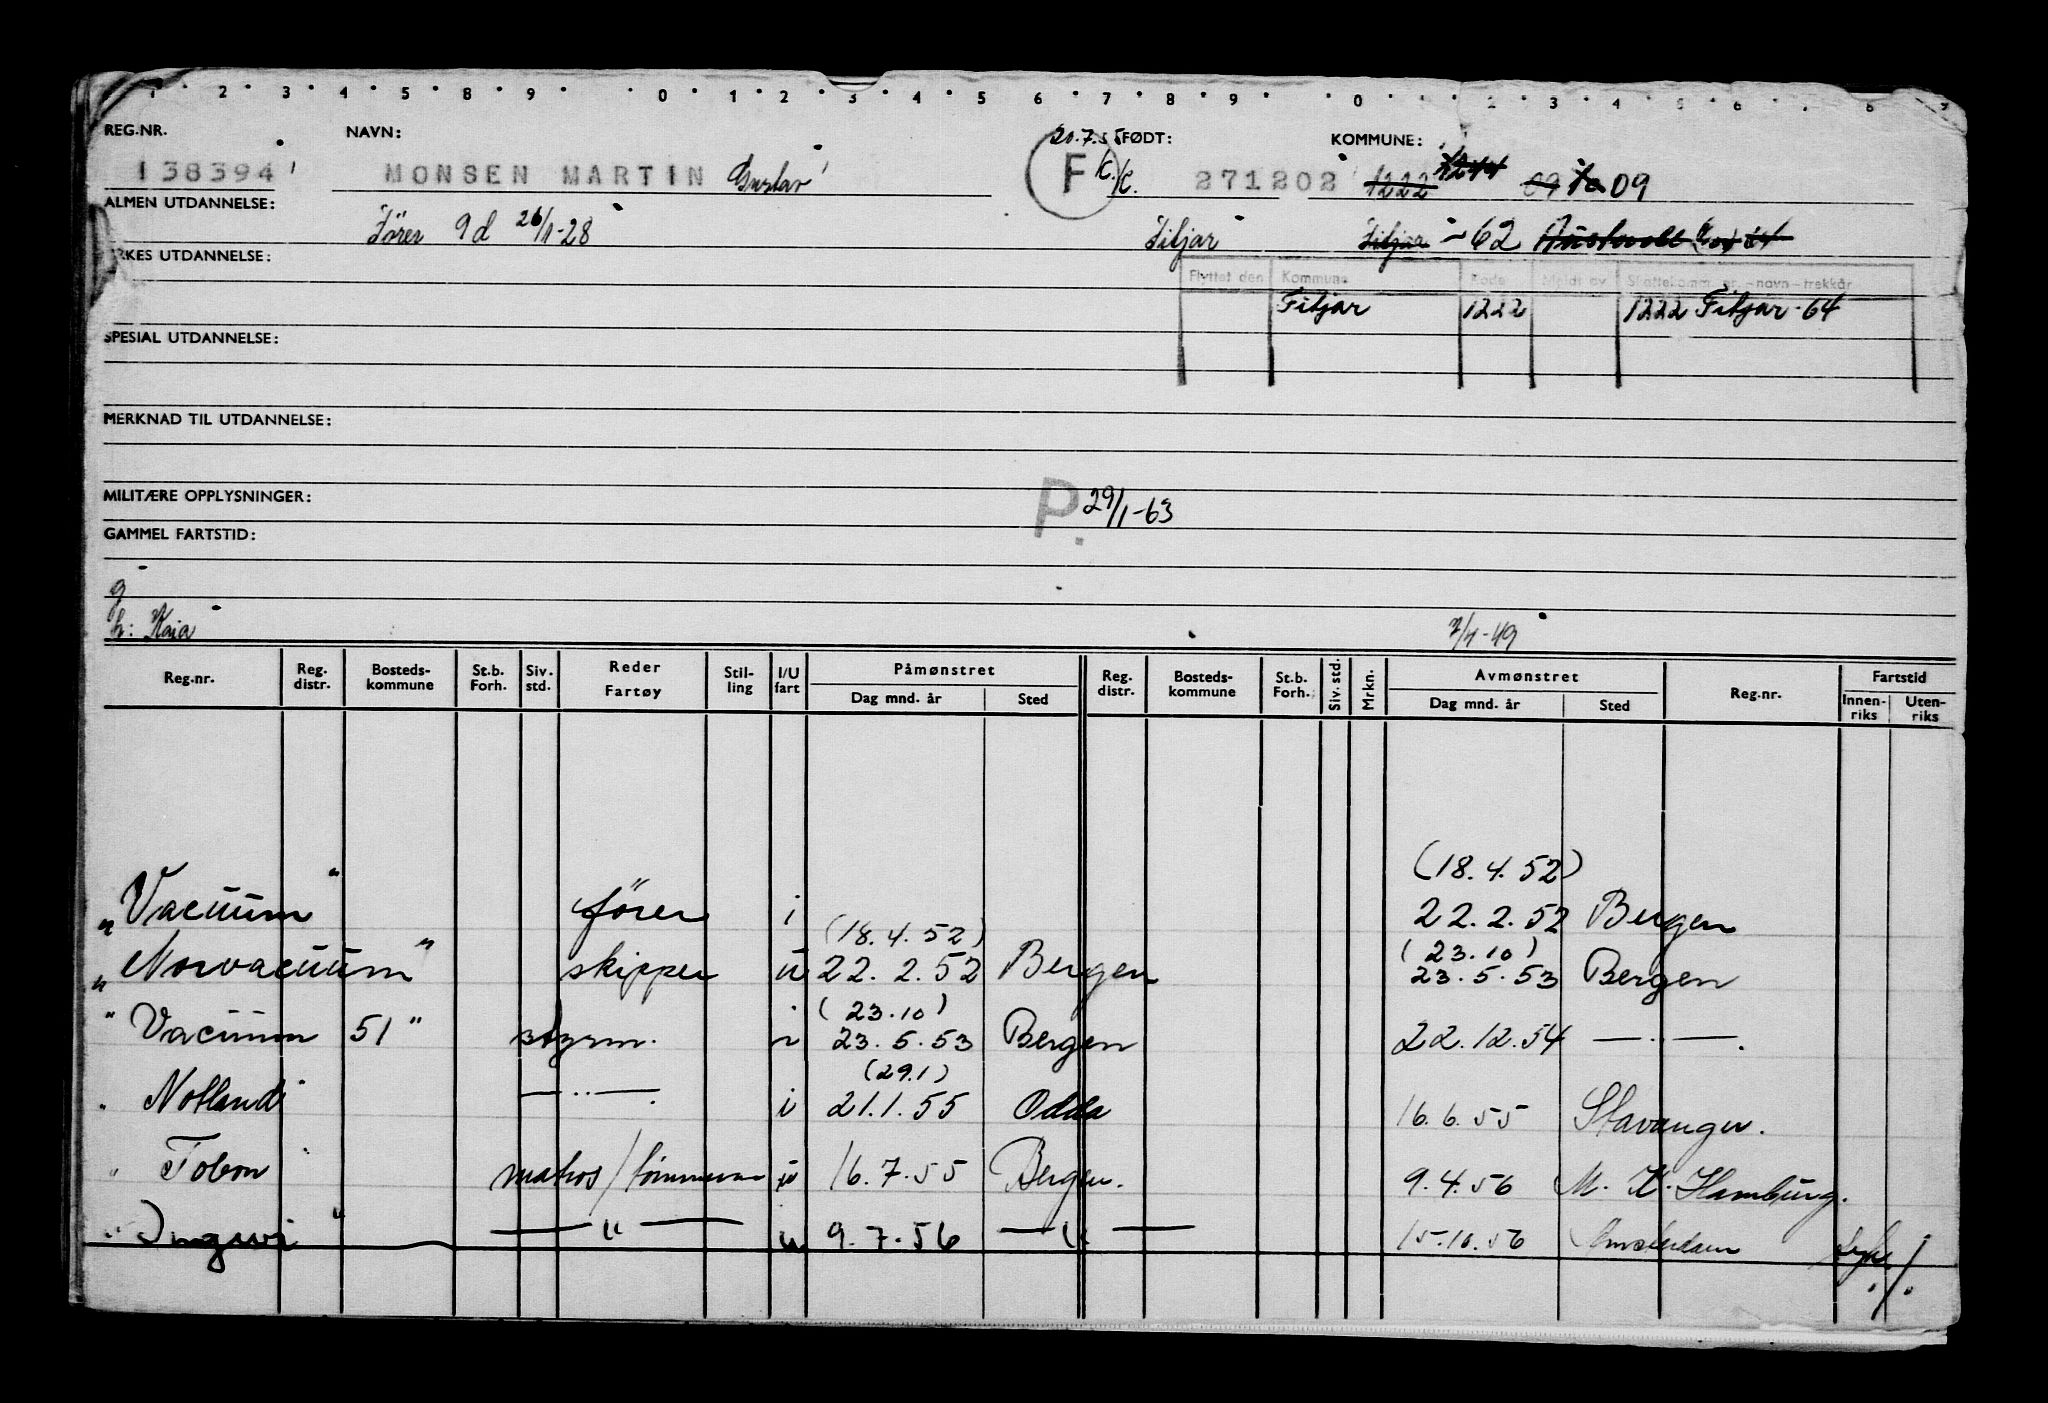 1 2 3 4 5 8 9 0 1 2 3 4 5 6 7 8 9 0 2 3 4 5 6 8
REG.NR. NAVN: 20.7.55 FØDT: KOMMUNE:
138394 MONSEN MARTIN Gustav F K./K. 271202 1222 1244 09 10 09
ALMEN UTDANNELSE: Fører 9d 26/1-28 Fitjar Fitjar - 62 Austevoll
YRKES UTDANNELSE:
Flyttet den Kommune Kode Meldt av Skattekomm. nr. - navn - trekkår
Fitjar 1222 1222 Fitjar - 64
SPESIAL UTDANNELSE:
MERKNAD TIL UTDANNELSE:
MILITÆRE OPPLYSNINGER: P. 29/1-63
GAMMEL FARTSTID:
g
h: Kaia 7/4-49
Reg.nr. Reg. distr. Bosteds-kommune St.b. Forh. Siv. std. Reder Fartøy Stil-ling I/U fart Påmønstret Dag mnd. år Sted Reg. distr. Bosteds-kommune St.b. Forh. Siv. std. Mrkn. Avmønstret Dag mnd. år Sted Reg.nr. Fartstid Innen-riks Uten-riks
(18.4.52)
"Vacuum" fører i 22.2.52 Bergen
(18.4.52) (23.10)
"Norvacuum" skipper u 22.2.52 Bergen 23.5.53 Bergen
(23.10)
"Vacuum 51" styrm. i 23.5.53 Bergen 22.12.54 — " —.
(29.1)
" Notland — " —. i 21.1.55 Odda 16.6.55 Stavanger.
" Tobon matros/tømmerm u 16.7.55 Bergen. 9.4.56 M. K. Hamburg.
" Ingwi " — " — u 9.7.56 — " — 15.10.56 Amsterdam syk
./.